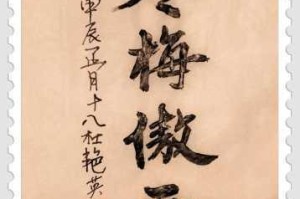 梅傲
甲辰正月十八杜艳英